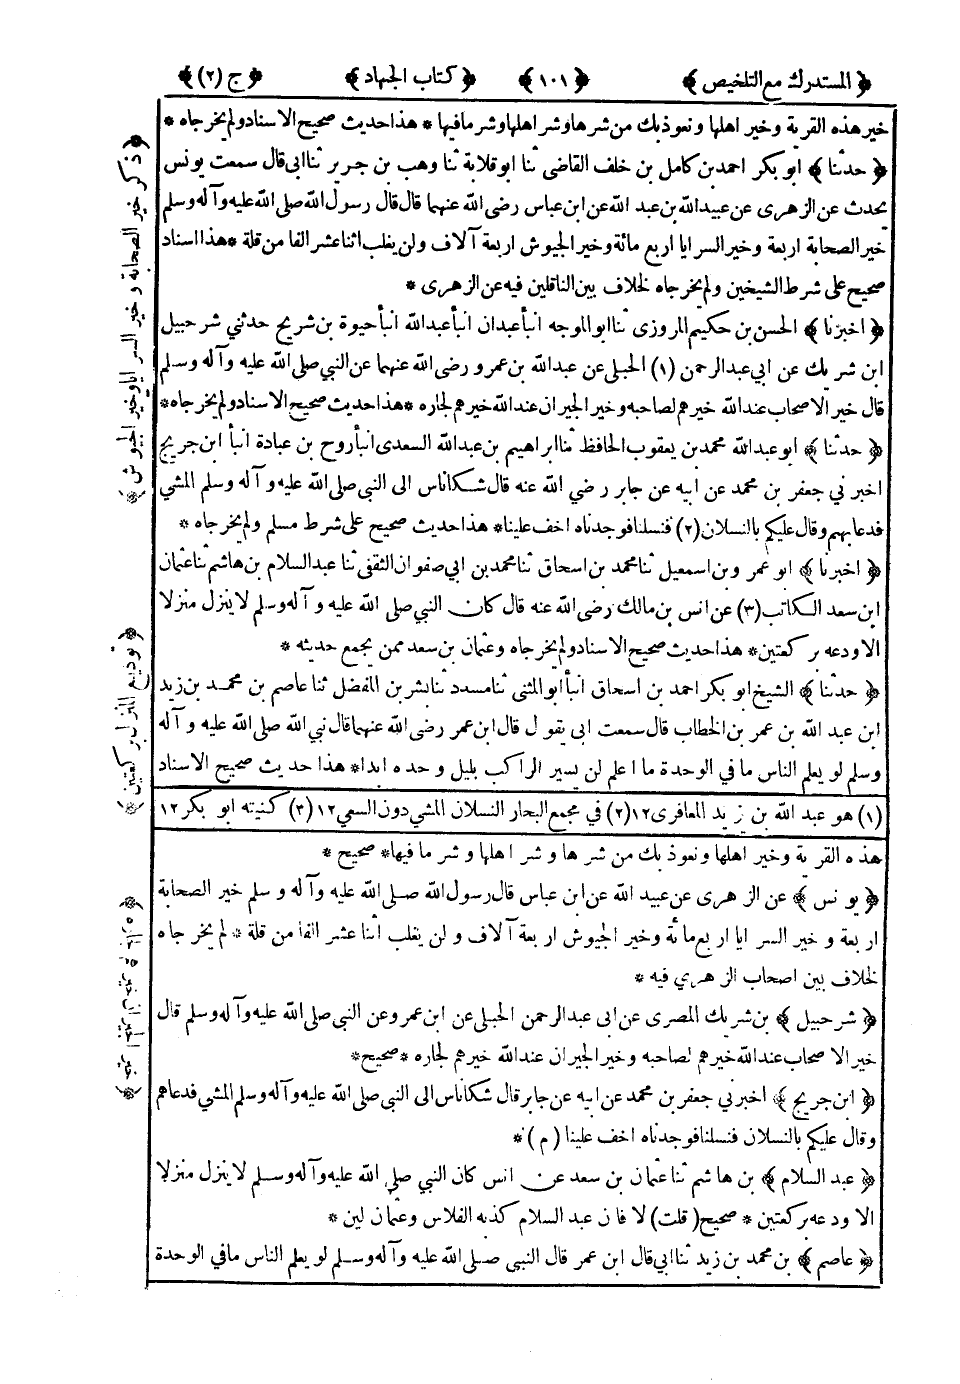 ﴿ المستدرك مع التلخيص ﴾ ﴿ ١٠١ ﴾ ﴿ كتاب الجهاد ﴾ ﴿ ج (٢) ﴾
خير هذه القرية وخير اهلها ونعوذ بك من شرها وشر اهلها وشر مافيها * هذا حديث صحيح الاسناد ولم يخرجاه *
﴿ حدثنا ﴾ ابو بكر احمد بن كامل بن خلف القاضى ثنا ابو قلابة ثنا وهب بن جرير ثنا ابى قال سمعت يونس
يحدث عن الزهرى عن عبيد الله بن عبد الله عن ابن عباس رضى الله عنهما قال قال رسول الله صلى الله عليه وآله وسلم
خير الصحابة اربعة وخير السرايا اربع مائة وخير الجيوش اربعة آلاف ولن يغلب اثنا عشر الفا من قلة * هذا اسناد
صحيح على شرط الشيخين ولم يخرجاه لخلاف بين الناقلين فيه عن الزهرى *
﴿ اخبرنا ﴾ الحسن بن حكيم المروزى ثنا ابو الموجه انبأ عبدان انبأ عبدالله انبأ حيوة بن شريح حدثني شرحبيل
ابن شريك عن ابي عبد الرحمن (١) الحبلى عن عبدالله بن عمرو رضى الله عنهما عن النبي صلى الله عليه وآله وسلم
قال خير الاصحاب عند الله خيرهم لصاحبه وخير الجيران عند الله خيرهم لجاره * هذا حديث صحيح الاسناد ولم يخرجاه *
﴿ حدثنا ﴾ ابو عبد الله محمد بن يعقوب الحافظ ثنا ابراهيم بن عبدالله السعدى انبأ روح بن عبادة انبأ ابن جريج
اخبرني جعفر بن محمد عن ابيه عن جابر رضي الله عنه قال شكا ناس الى النبي صلى الله عليه وآله وسلم المشي
فدعا بهم وقال عليكم بالنسلان (٢) فنسلنا فوجدناه اخف علينا * هذا حديث صحيح على شرط مسلم ولم يخرجاه *
﴿ اخبرنا ﴾ ابو عمرو بن اسمعيل ثنا محمد بن اسحاق ثنا محمد بن ابي صفوان الثقفى ثنا عبد السلام بن هاشم ثنا عثمان
ابن سعد الكاتب (٣) عن انس بن مالك رضى الله عنه قال كان النبي صلى الله عليه وآله وسلم لا ينزل منزلا
الا ودعه بركعتين * هذا حديث صحيح الاسناد ولم يخرجاه وعثمان بن سعد ممن يجمع حديثه *
﴿ حدثنا ﴾ الشيخ ابو بكر احمد بن اسحاق انبأ ابو المثنى ثنا مسدد ثنا بشر بن المفضل ثنا عاصم بن محمد بن زيد
ابن عبد الله بن عمر بن الخطاب قال سمعت ابى يقول قال ابن عمر رضى الله عنهما قال نبي الله صلى الله عليه وآله
وسلم لو يعلم الناس ما في الوحدة ما اعلم لن يسير الراكب بليل وحده ابدا * هذا حديث صحيح الاسناد
(١) هو عبد الله بن زيد المعافرى ١٢ (٢) في مجمع البحار النسلان المشي دون السعي ١٢ (٣) كنيته ابو بكر ١٢
هذه القرية وخير اهلها ونعوذ بك من شرها وشر اهلها وشر ما فيها * صحيح *
﴿ يونس ﴾ عن الزهرى عن عبيد الله عن ابن عباس قال رسول الله صلى الله عليه وآله وسلم خير الصحابة
اربعة وخير السرايا اربع مائة وخير الجيوش اربعة آلاف ولن يغلب اثنا عشر الفا من قلة * لم يخرجاه
لخلاف بين اصحاب الزهري فيه *
﴿ شرحبيل ﴾ بن شريك المصرى عن ابى عبد الرحمن الحبلى عن ابن عمرو عن النبى صلى الله عليه وآله وسلم قال
خير الاصحاب عند الله خيرهم لصاحبه وخير الجيران عند الله خيرهم لجاره * صحيح *
﴿ ابن جريج ﴾ اخبرني جعفر بن محمد عن ابيه عن جابر قال شكا ناس الى النبى صلى الله عليه وآله وسلم المشي فدعاهم
وقال عليكم بالنسلان فنسلنا فوجدناه اخف علينا ( م ) *
﴿ عبد السلام ﴾ بن هاشم ثنا عثمان بن سعد عن انس كان النبي صلى الله عليه وآله وسلم لا ينزل منزلا
الا ودعه بركعتين * صحيح ( قلت ) لا فان عبد السلام كذبه الفلاس وعثمان لين *
﴿ عاصم ﴾ بن محمد بن زيد ثنا ابي قال ابن عمر قال النبى صلى الله عليه وآله وسلم لو يعلم الناس مافي الوحدة
﴿ ذكر خير الصحابة وخير السرايا وخير الجيوش ﴾
﴿ توديع المنزل بركعتين ﴾
﴿ خير الجيران خيرهم لجاره ﴾